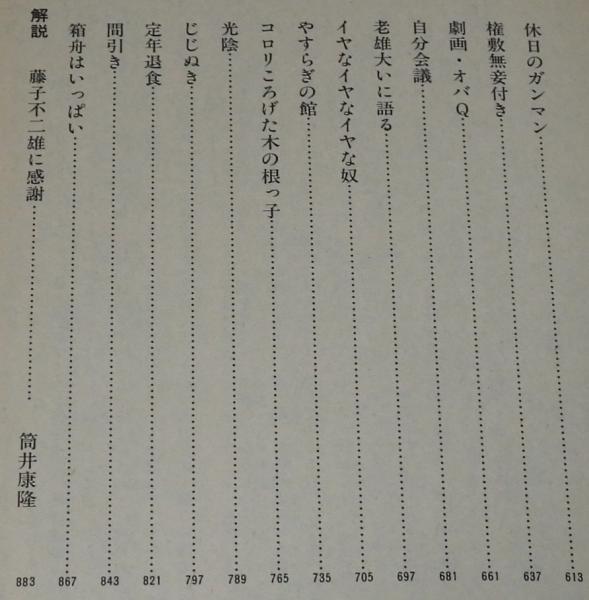 休日のガンマン……613
権敷無妾付き……637
劇画・オバQ……661
自分会議……681
老雄大いに語る……697
イヤなイヤなイヤな奴……705
やすらぎの館……735
コロリころげた木の根っ子……765
光陰……789
じじぬき……797
定年退食……821
間引き……843
箱舟はいっぱい……867
解説 藤子不二雄に感謝……筒井康隆 883